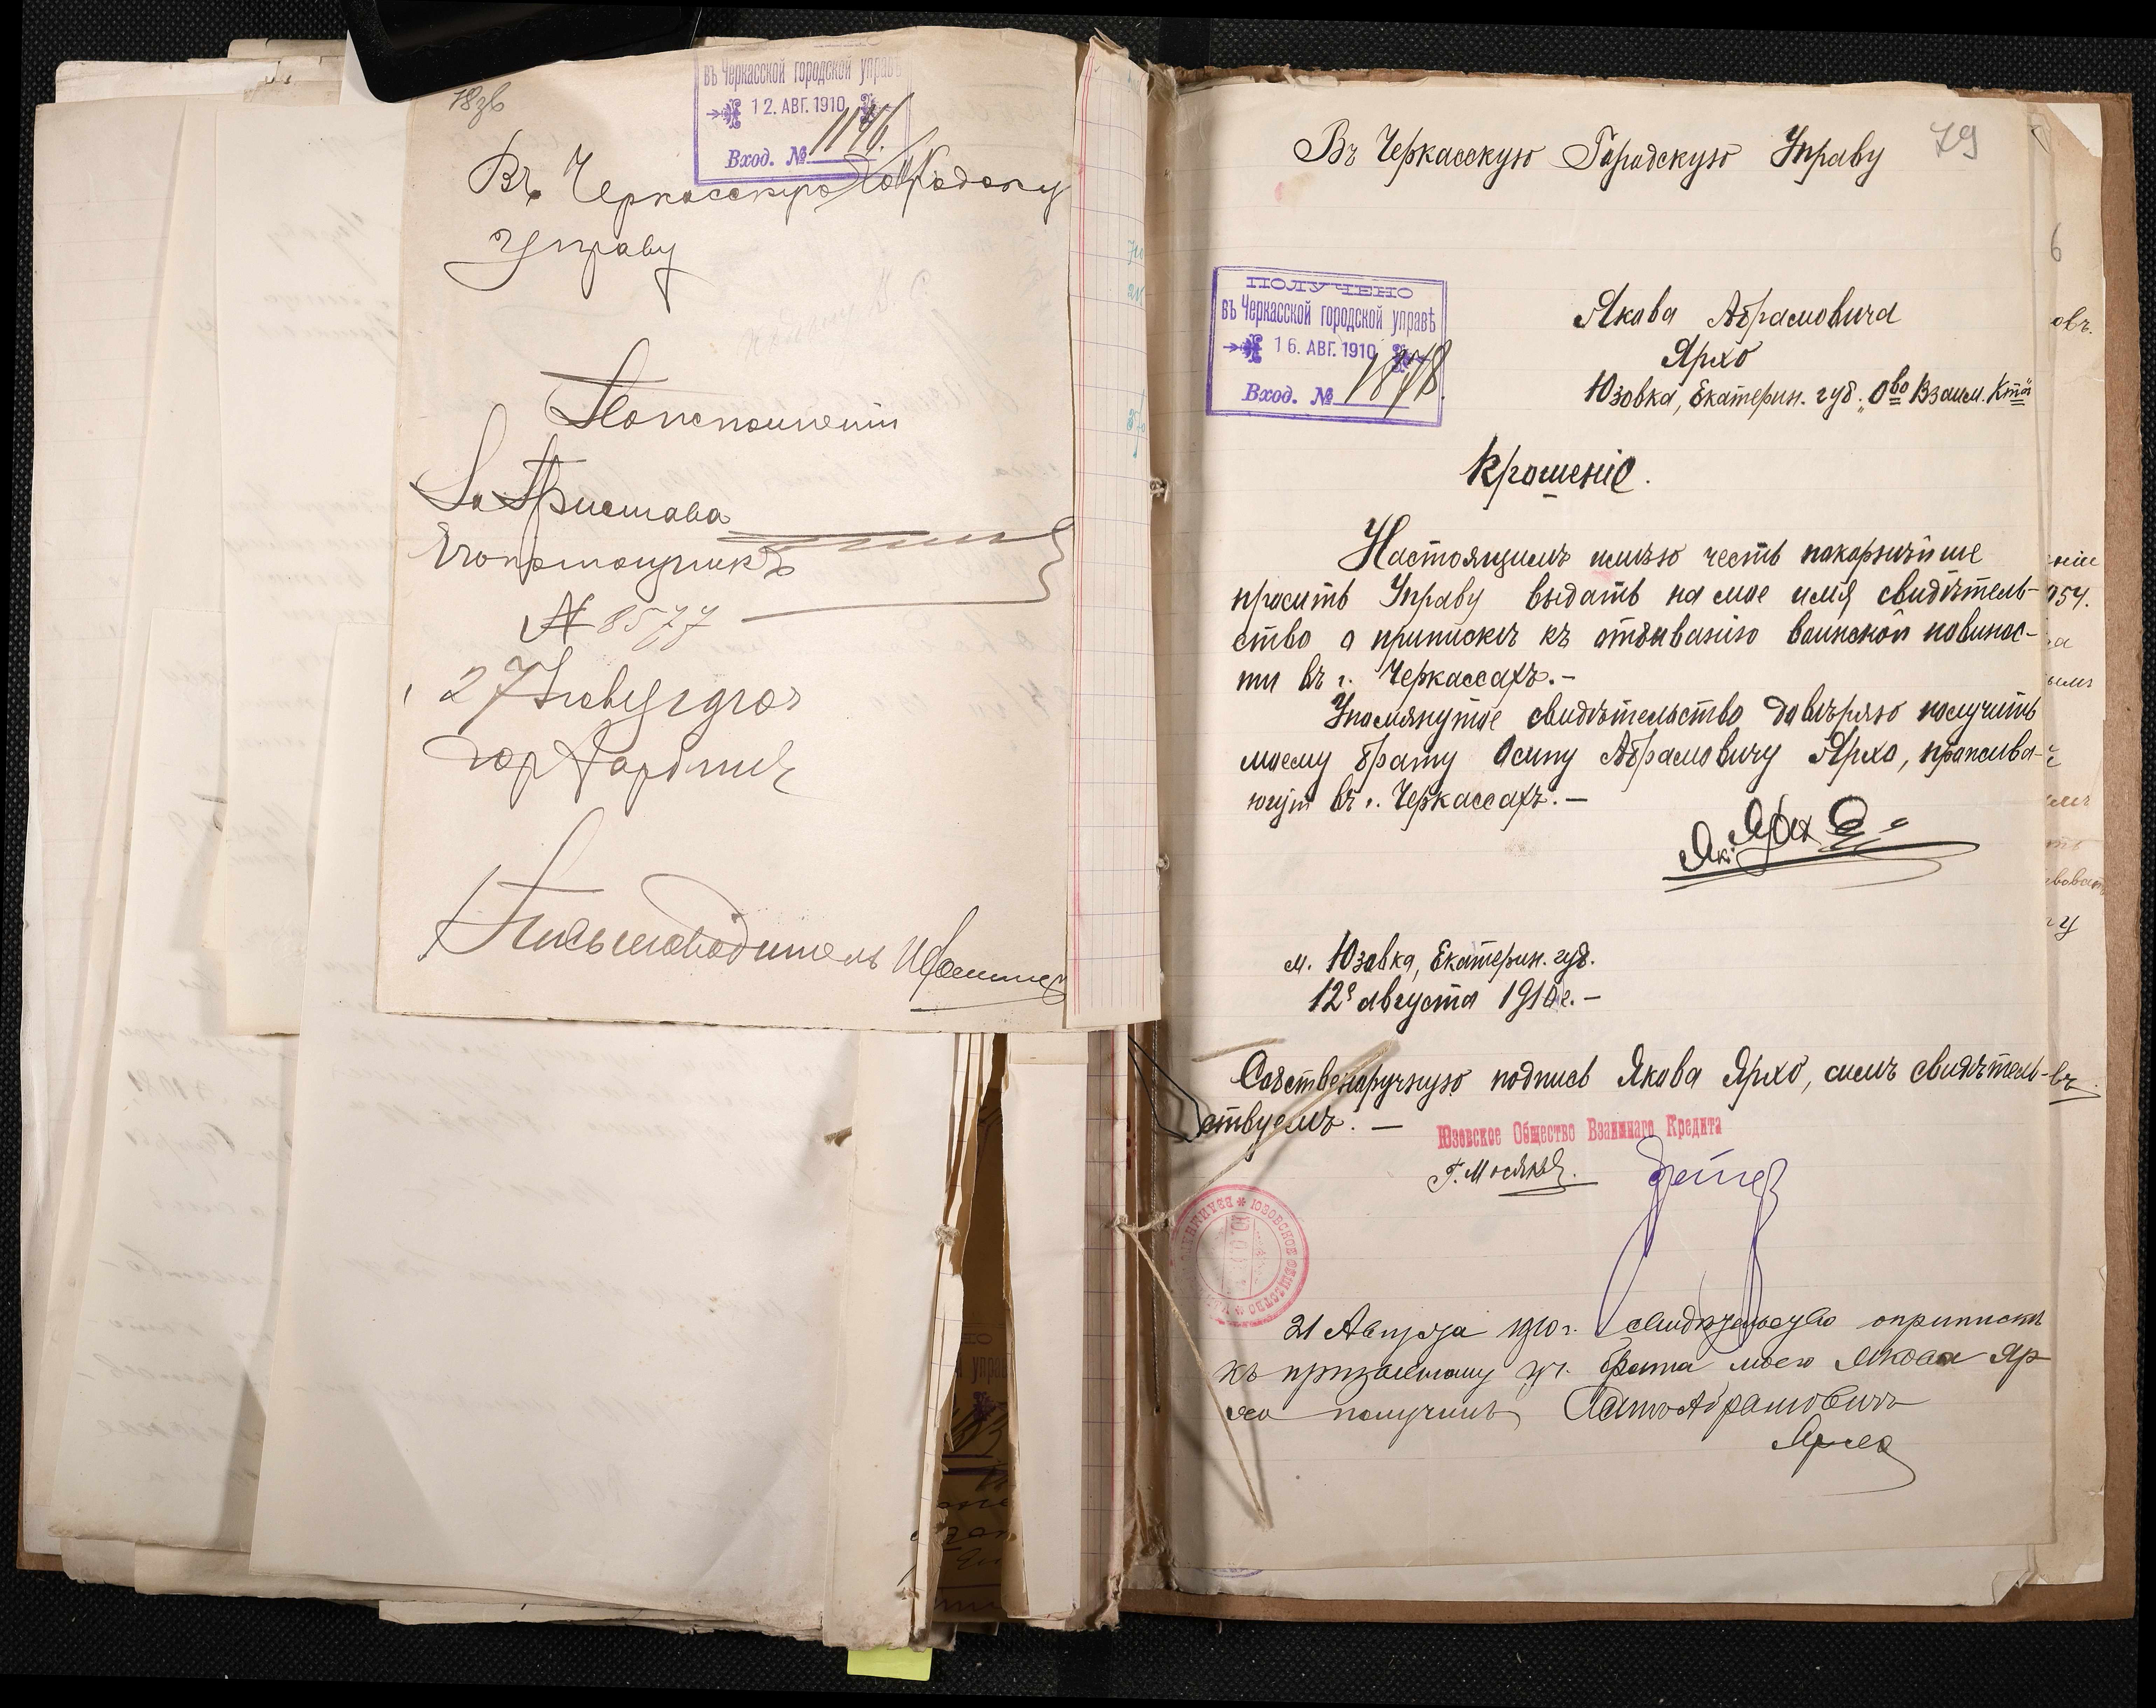 78зв
въ Черкасской городской управѣ
12. АВГ. 1910
Вход. № 1146.
Въ Черкасскую Городску
Управу
По исполненіи
За Пристава
Его помощникъ
№ 8577
27
Письмоводитель
79
Въ Черкасскую Городскую Управу
ПОЛУЧЕНО
въ Черкасской городской управѣ
16. АВГ. 1910
Вход. №
Якова Абрамовича
Ярхо
Юзовка, Екатерин. губ. „Обо Взаим. Кта"
Прошеніе.
Настоящимъ имѣю честь покорнѣйше
просить Управу выдать на мое имя свидѣтель-
ство о припискѣ къ отбыванію воинской повинос-
ти въ г. Черкассахъ.-
Упомянутое свидѣтельство довѣряю получить
моему брату Осипу Абрамовичу Ярхо, прожива-
ющ въ г. Черкассахъ.-
Як. Ярхо
м. Юзовка, Екатерин. губ.
12го августа 1910 г.-
Собственоручную подпись Якова Ярхо, симъ свидѣтель-
ствуемъ.-
Юзовское Общество Взаимнаго Кредита
ЮЗОВСКОЕ ОБЩЕСТВО ВЗАИМНАГО
21 Августа 1910 г. свидѣтельство о припискѣ
къ призывному уч. брата моего Якова Яр-
хо получилъ Абрамовичъ
Ярхо